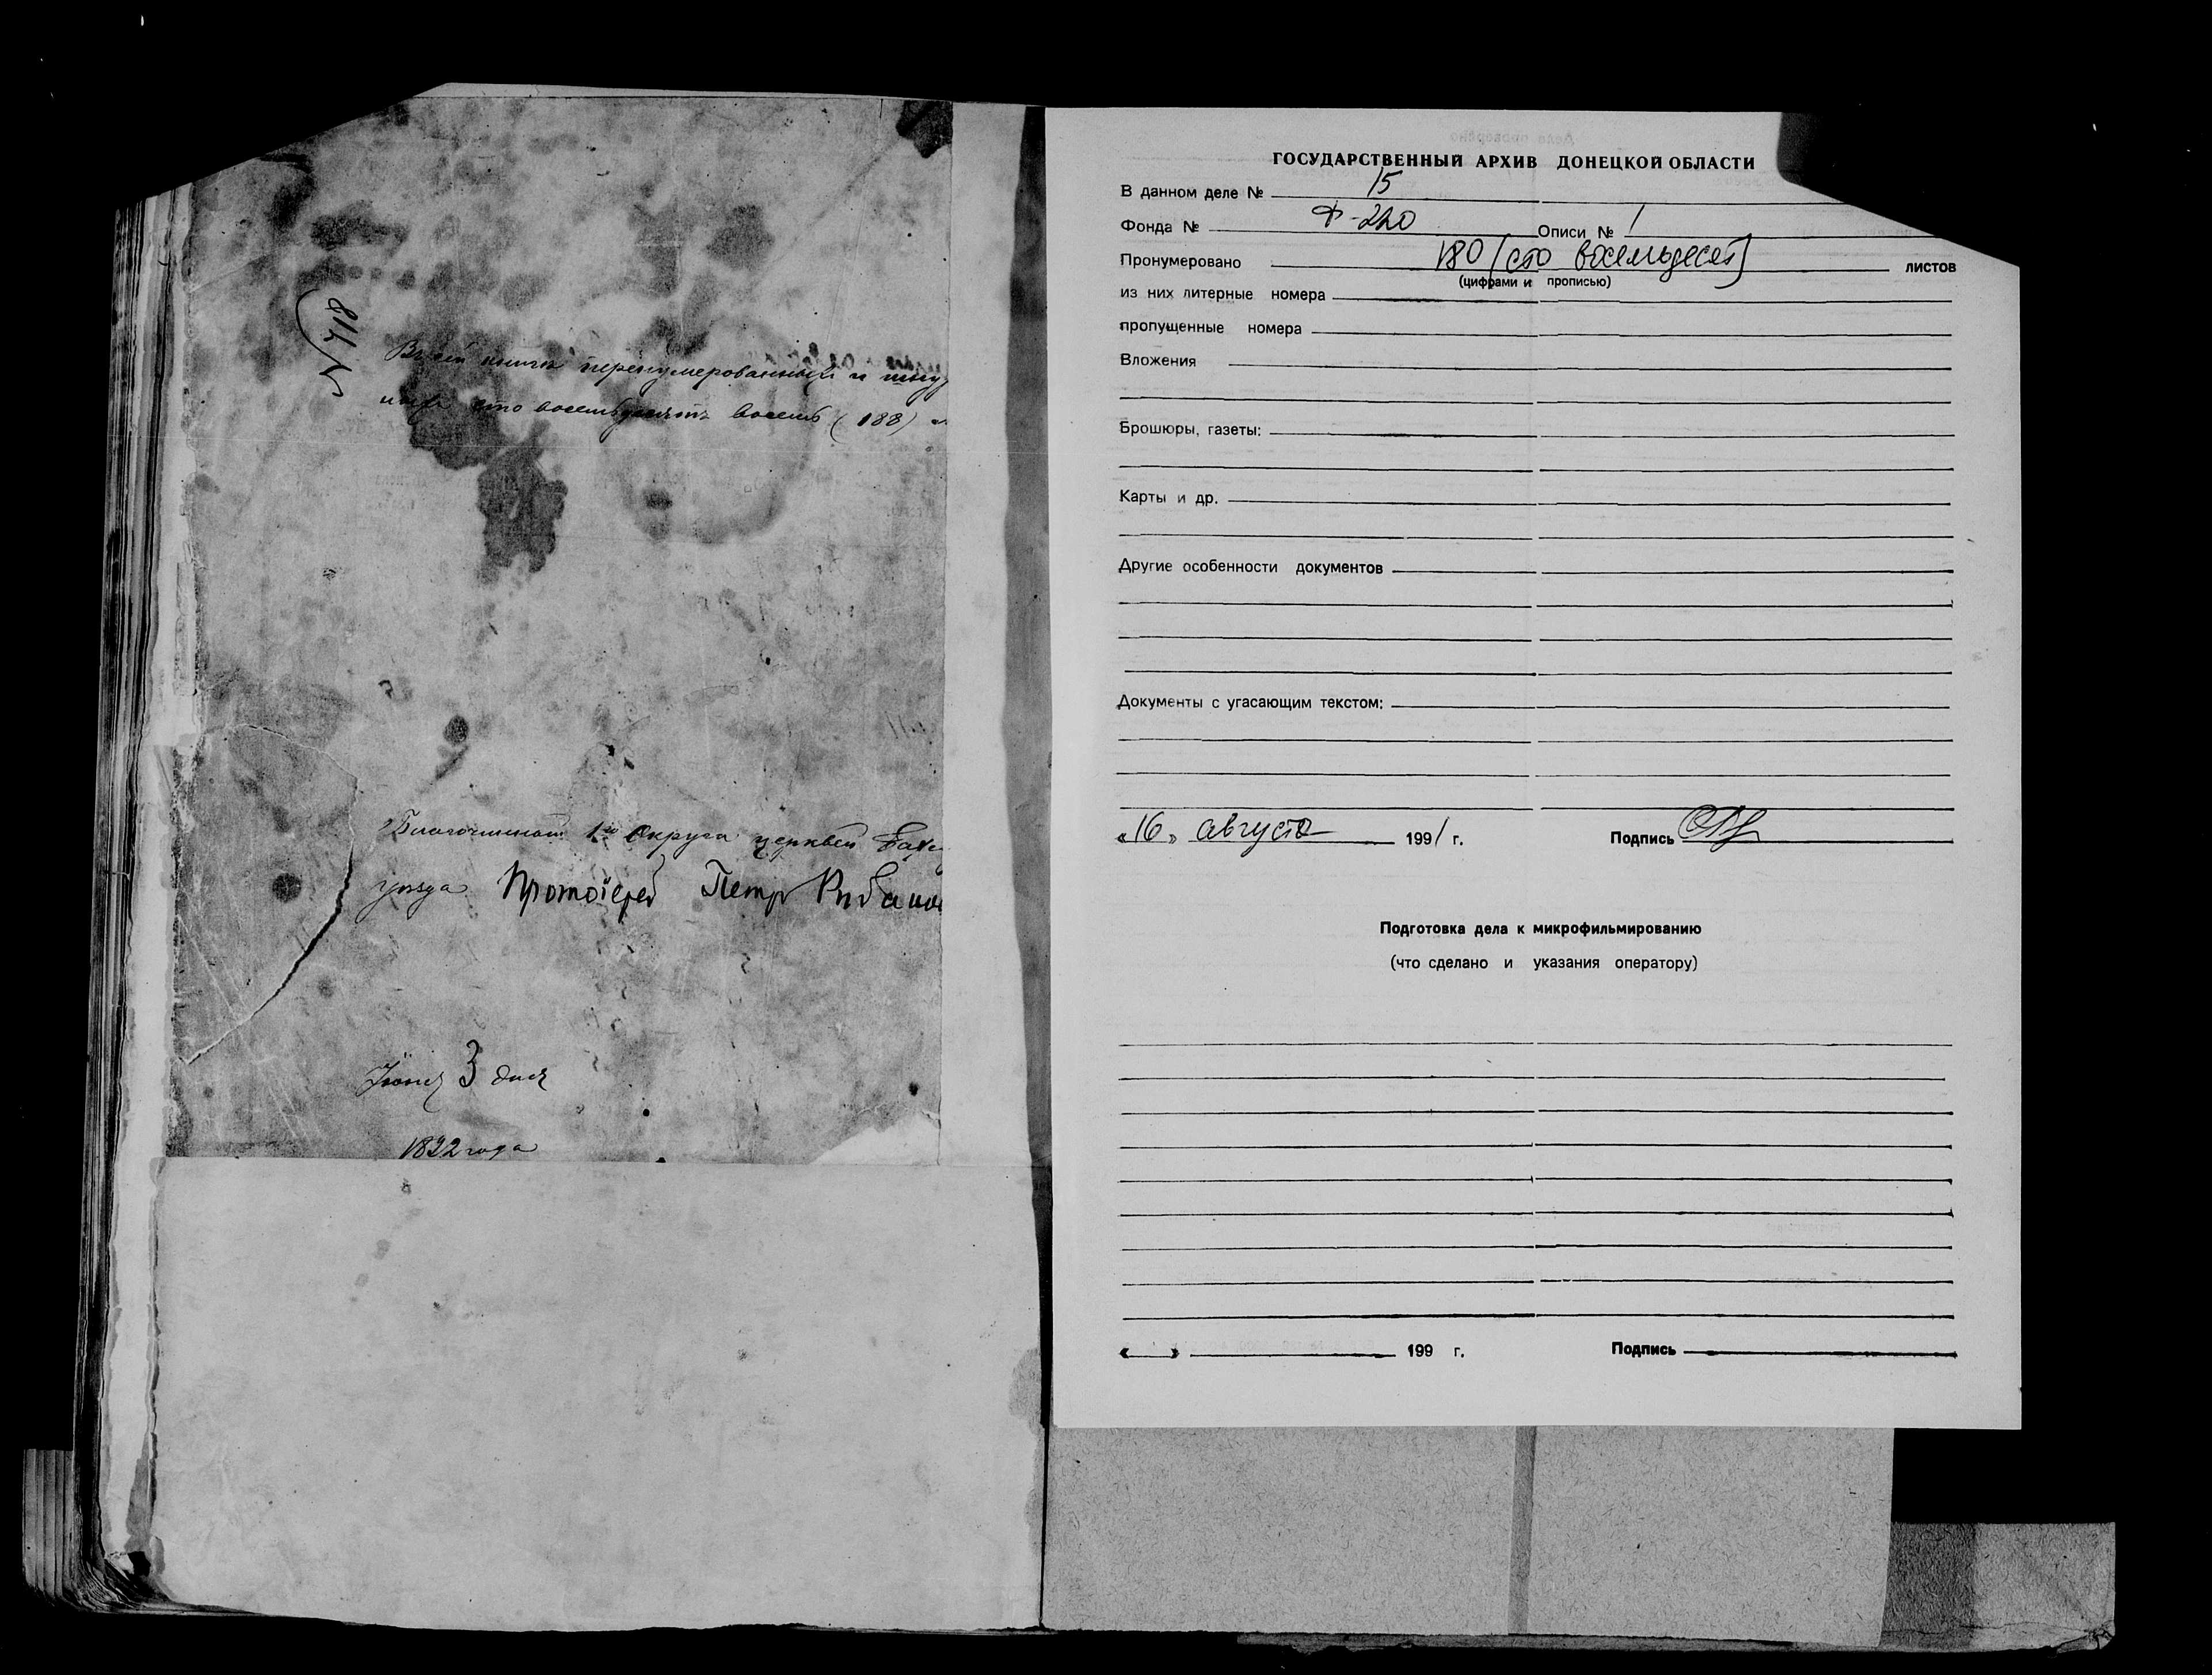 N 718
В сей книге перенумерованныхъ и шну
сто восемьдесятъ восемь (188)
Благочинный 1го Округа церквей Бахм
уѣзда Протоіерей Петръ
Іюня 3 дня
года
ГОСУДАРСТВЕННЫЙ АРХИВ ДОНЕЦКОЙ ОБЛАСТИ
В данном деле № 15
Фонда № Ф-220 Описи № 1
Пронумеровано 180 (сто восемьдесят) листов
(цифрами и прописью)
из них литерные номера
пропущенные номера
Вложения
Брошюры, газеты:
Карты и др.
Другие особенности документов
Документы с угасающим текстом:
«16» августа 1991 г. Подпись
Подготовка дела к микрофильмированию
(что сделано и указания оператору)
« » 199 г. Подпись